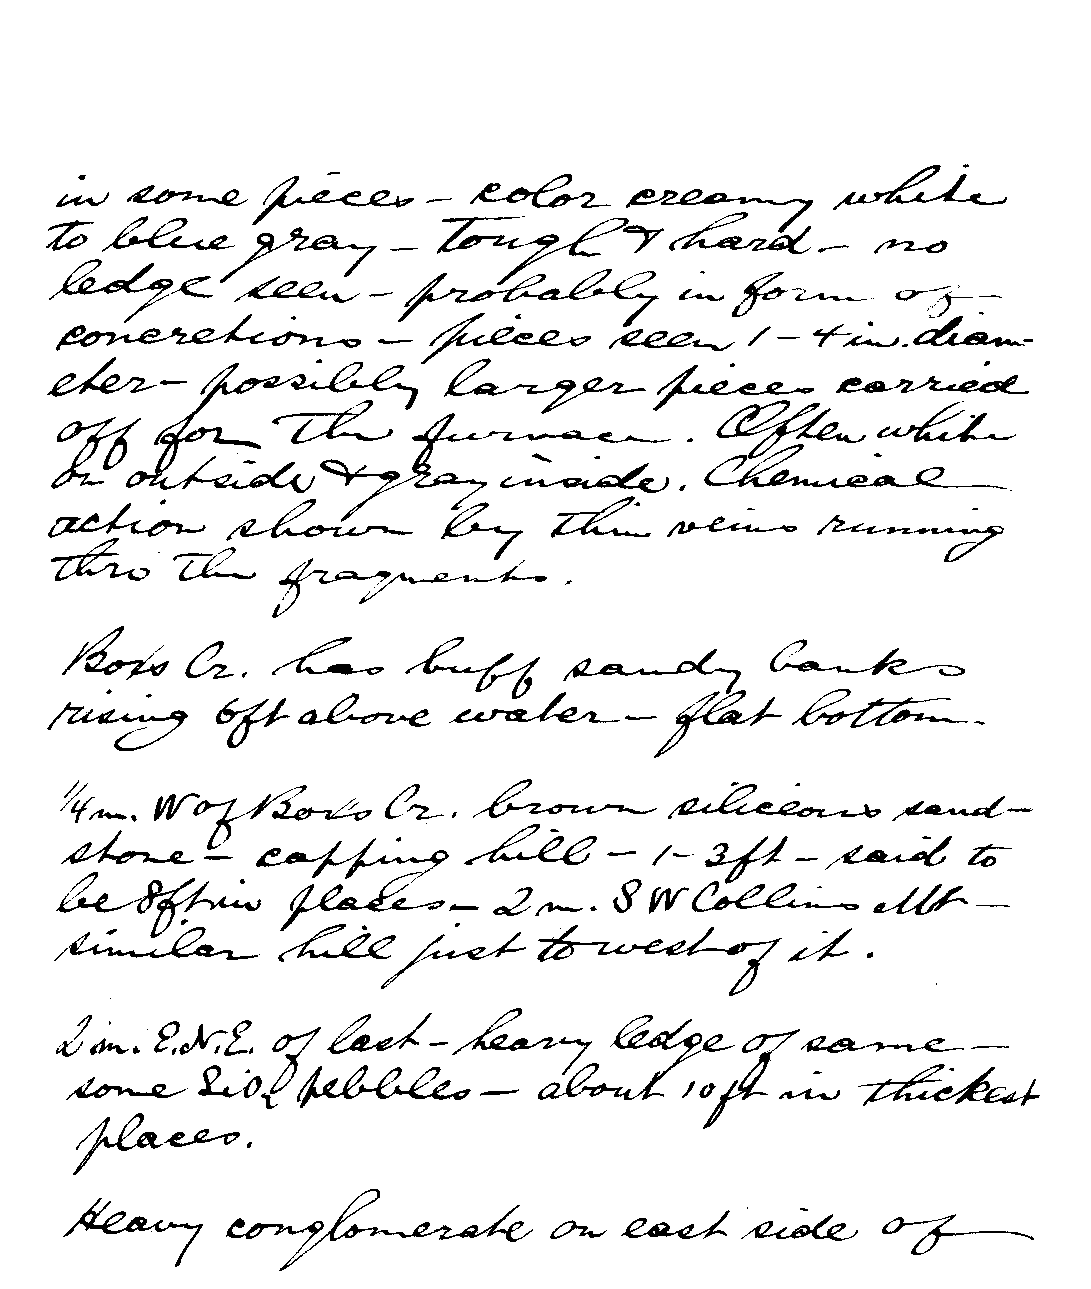 in some pieces – color creamy white
to blue gray – tough & hard – no
ledge seen – probably in form of –
concretions – pieces seen 1 – 4 in. diam-
eter – possibly larger pieces carried
off for the furnace. Often white
on outside & gray inside. Chemical
action shown by thin veins running
thro the fragments.
Box's Cr. has buff sandy banks
rising 6ft above water – flat bottom.
1/4 m. W of Box's Cr. brown siliceous sand-
stone – capping hill – 1 – 3ft – said to
be 8ft in places – 2 m. SW Collins Mt –
similar hill just to west of it.
2 m. E.N.E. of last – heavy ledge of same –
some SiO2 pebbles – about 10 ft in thickest
places.
Heavy conglomerate on east side of